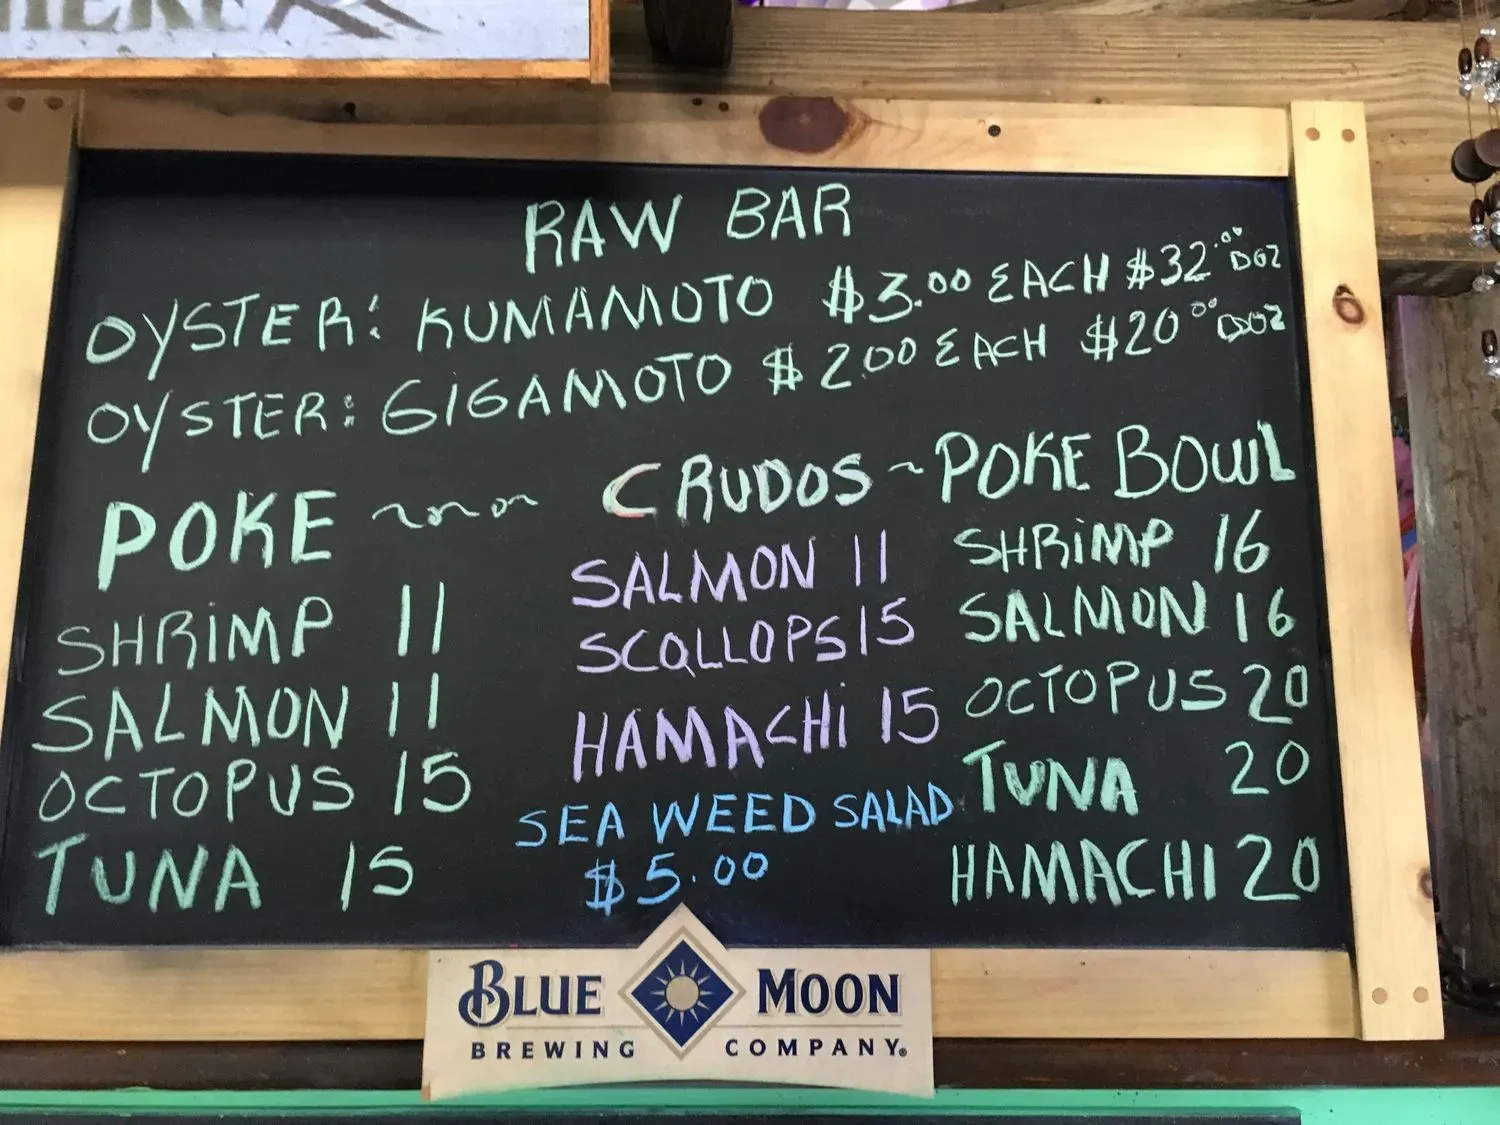 RAW BAR
OYSTER: KUMAMOTO $3.00 EACH $32.00 DOZ
OYSTER: GIGAMOTO $2.00 EACH $20.00 DOZ
POKE
SHRiMP 11
SALMON 11
OCTOPUS 15
TUNA 15
CRUDOS
SALMON 11
SCALLOPS 15
HAMACHi 15
SEA WEED SALAD
$5.00
POKE BOWL
SHRiMP 16
SALMON 16
OCTOPUS 20
TUNA 20
HAMACHI 20
BLUE MOON
BREWING COMPANY®